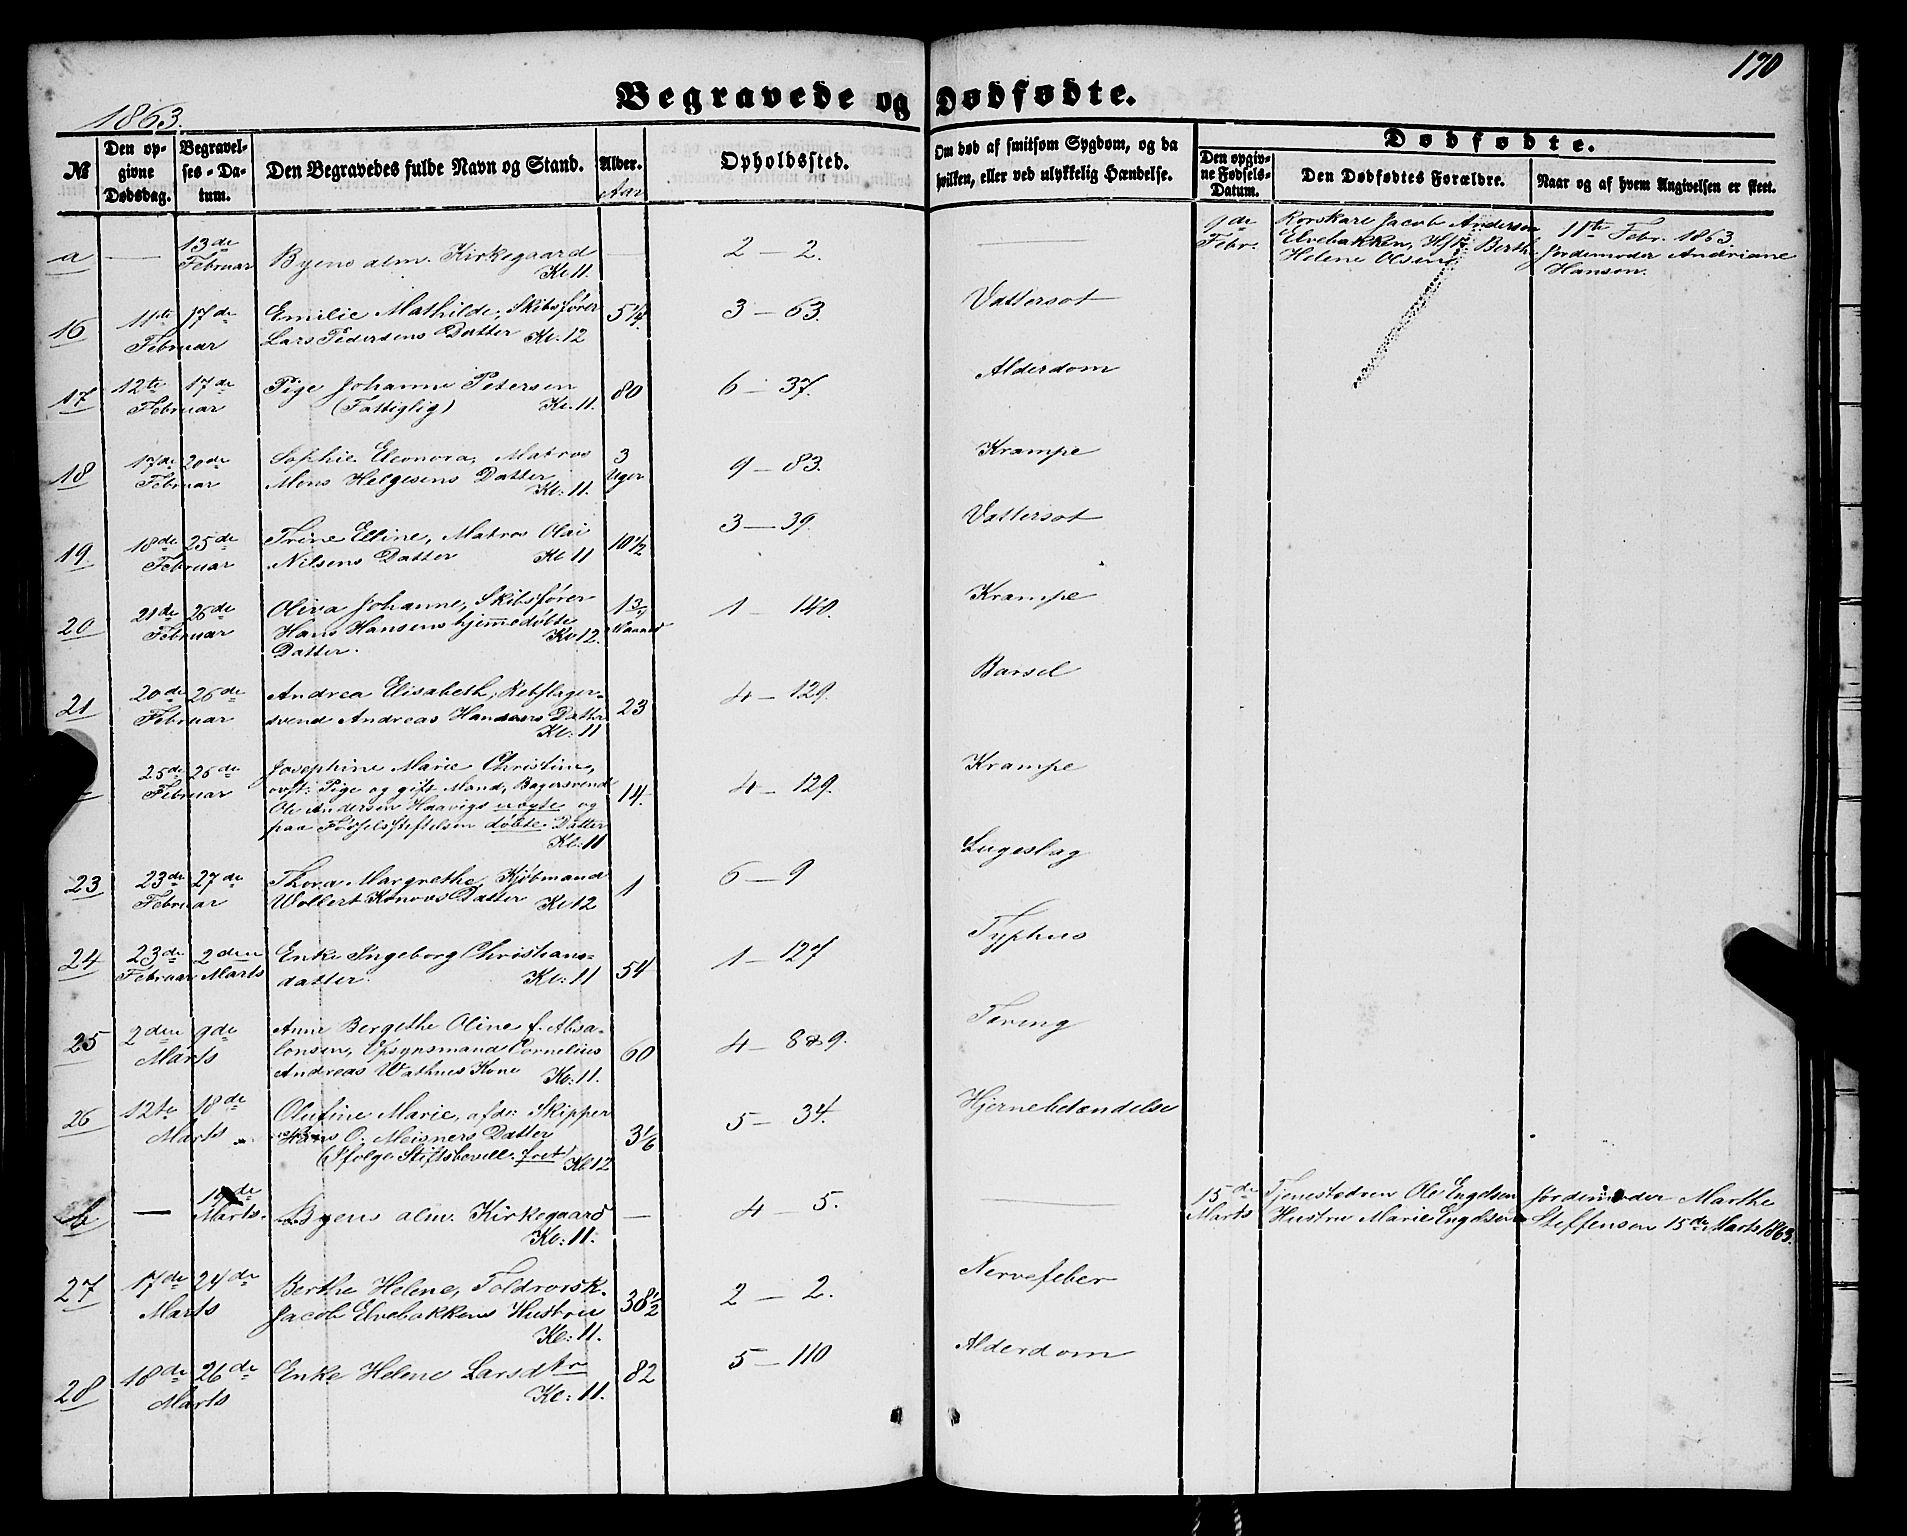 170
Begravede og Dødfødte.
1863.
№ Den opgivne Dødsdag. Begravelses-Datum. Den Begravedes fulde Navn og Stand. Alder. Aar Opholdssted. Om død af smitsom Sygdom, og da hvilken, eller ved ulykkelig Hændelse. Dødfødte.
Den opgivne Fødsels-Datum. Den Dødfødtes Forældre. Naar og af hvem Angivelsen er skeet.
a — 13de Februar Byens alm. Kirkegaard Kl 11 — 2 — 2. — 9de Febr. Jacob Andersen Elvebakken, Berthe Helene Olsen 11te Febr. 1863. Jordemoder Andriane Hansen.
16 11te 17de Februar Emilie Mathilde, Skibsfører
Lars Pedersens Datter Kl. 12 5¼ 3 — 63. Vattersot
17 12te 17de Februar Pige Johanne Petersen
(Fattiglig) Kl. 11. 80 6 — 37. Alderdom
18 17de 20de Februar Sophie Eleonora, Matros
Mons Helgesens Datter Kl: 11. 3 Uger 9 — 83. Krampe
19 18de 25de Februar Trine Elline, Matros Olai
Nilsens Datter Kl 11 10½ 3 — 39. Vattersot
20 21de 26de Februar Oliva Johanne, Skibsfører
Hans Hansens hjemmedøbte
Datter. Kl 12. 1 — 140. Krampe
21 20de 26de Februar Andrea Elisabeth, Rebslager-
svend Andreas Hansens Datter
Kl: 11 23 4 — 129. Barsel
25de 26de Februar Josephine Marie Christine,
Pige og gift Mand, Bagersvend
Ole Andersen Haavigs uægte og
paa Fødselsstiftelsen døbte Datter
Kl: 11 14. 4 — 129. Krampe
23 23de 27de Februar Thora Margrethe, Kjøbmand
Wollert Konows Datter Kl 12 1 6 — 9
24 23de Februar 2den Marts Enke Ingeborg Christians-
datter. Kl: 11 54 1 — 127 Typhus
25 2den 9de Marts Anne Bergethe Oline f. Absa-
lonsen, Opsynsmand Cornelius
Andreas Wathnes Kone Kl: 11. 60 4 — 8&9. Tæring
26 12te 18de Marts Olufine Marie, afdø: Skipper
Hans O. Meisners Datter
(Ifølge Stiftsbevill. frit) Kl 12 3⅙ 5 — 34. Hjernebetændelse
b — Marts. Byens alm. Kirkegaard
Kl: 11. — 4 — 5. — 15de Marts Ole Engelsen
Hustru Marie Engelsen Jordemoder Marthe
Steffensen 15de Marts 1863.
27 17de 24de Marts Berthe Helene, Toldrorsk.
Jacob Elvebakkens Hustru
Kl: 11. 38½ 2 — 2. Nervefeber
28 18de 26de Marts Enke Helene Larsdtr
Kl: 11. 82 5 — 110 Alderdom